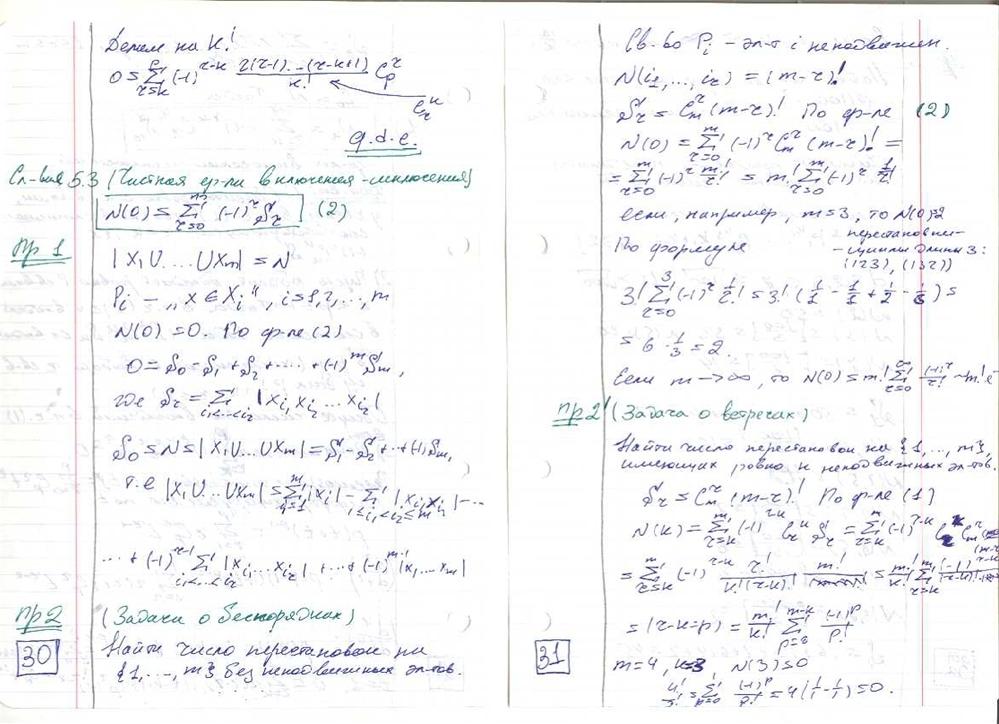 Делим на k!
0 = Σ_{r=k}^{p} (-1)^{r-k} r(r-1)...(r-k+1)/k! C_p^r
C_r^k
q.d.e.
Сл-вие 5.3 (Частная ф-ла включения-исключения)
N(0) = Σ_{r=0}^{m} (-1)^r S_r (2)
Пр 1
|X_1 U .... U X_m| = N
P_i - „x ∈ X_i“, i=1,2,...,m
N(0) = 0. По ф-ле (2)
0 = S_0 - S_1 + S_2 + ..... + (-1)^m S_m,
где S_r = Σ_{i_1<...<i_r} |X_{i_1} X_{i_2} ... X_{i_r}|
S_0 = N = |X_1 U ... U X_m| = S_1 - S_2 + ... + (-1) S_m,
т.е |X_1 U ... U X_m| = Σ_{i=1}^{m} |X_i| - Σ_{1≤i_1<i_2≤m} |X_{i_1} X_{i_2}| - ...
... + (-1)^{r-1} Σ_{i_1<...<i_r} |X_{i_1} ... X_{i_r}| + ... + (-1)^{m-1} |X_1 ... X_m|
Пр 2 (Задача о беспорядках)
Найти число перестановок на
{1, ..., m} без неподвижных эл-тов.
30
Св-во P_i - эл-т i неподвижен.
N(i_1, ..., i_r) = (m-r)!
S_r = C_m^r (m-r)! По ф-ле (2)
N(0) = Σ_{r=0}^{m} (-1)^r C_m^r (m-r)! =
= Σ_{r=0}^{m} (-1)^r m!/r! = m! Σ_{r=0}^{m} (-1)^r 1/r!
если, например, m=3, то N(0)=2
перестановки-
По формуле -циклы длины 3:
(123), (132))
3! Σ_{r=0}^{3} (-1)^r 1/r! = 3! (1/1 - 1/1 + 1/2 - 1/6) =
= 6 · 1/3 = 2.
Если m → ∞, то N(0) = m! Σ_{r=0}^{∞} (-1)^r/r! ~ m! e
Пр 2' (Задача о встречах)
Найти число перестановок на {1, ..., m},
имеющих ровно k неподвижных эл-тов.
S_r = C_m^r (m-r)! По ф-ле (1)
N(k) = Σ_{r=k}^{m} (-1)^{r-k} C_r^k S_r = Σ_{r=k}^{m} (-1)^{r-k} C_r^k C_m^r (m-r)
= Σ_{r=k}^{m} (-1)^{r-k} r!/k!(r-k)! m!/r! = m!/k! Σ_{r=k}^{m} (-1)^{r-k}/(r-k)!
= (r-k=p) = m!/k! Σ_{p=0}^{m-k} (-1)^p/p!
m=4, k=3 N(3)=0
4!/3! = Σ_{p=0}^{1} (-1)^p/p! = 4(1/1 - 1/1) = 0.
31